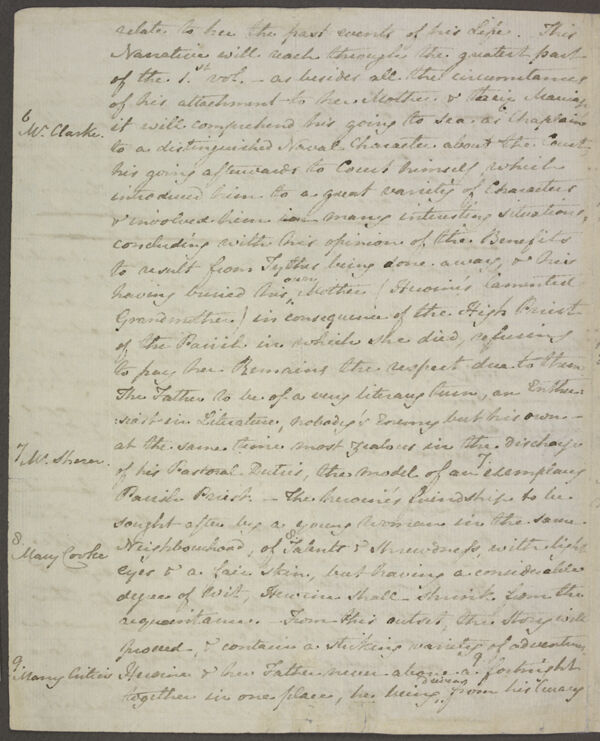 relate to her the past events of his Life. This
Narrative will reach through the greatest part
of the 1.st vol. – as besides all the circumstances
of his attachment to her Mother & their Marriage,
6
Mr. Clarke.
it will comprehend his going to sea as Chaplain
to a distinguished Naval Character about the Court,
his going afterwards to Court himself, which
introduced him to a great variety of Characters
& involved him in many interesting situations,
concluding with his opinion of the Benefits
to result from Tythes being done away, & his
having buried his own Mother (Heroine's lamented
Grandmother) in consequence of the High Priest
of the Parish in which she died, refusing
to pay her Remains the respect due to them.
The Father to be of a very literary turn, an Enthu-
siast in Literature, nobody's Enemy but his own –
at the same time most zealous in the discharge
7
Mr. Sherer.
of his Pastoral Duties, the model of an 7 exemplary
Parish Priest. – The heroine's friendship to be
sought after by a young Woman in the same
8.
Mary Cooke
Neighbourhood, of 8 Talents & Shrewdness, with light
eyes & a fair skin, but having a considerable
degree of Wit, Heroine shall shrink from the
acquaintance. – From this outset, the Story will
proceed, & contain a striking variety of adventures.
9.
Many Critics
Heroine & her Father never above a 9 fortnight
together in one place, he being driven from his Curacy